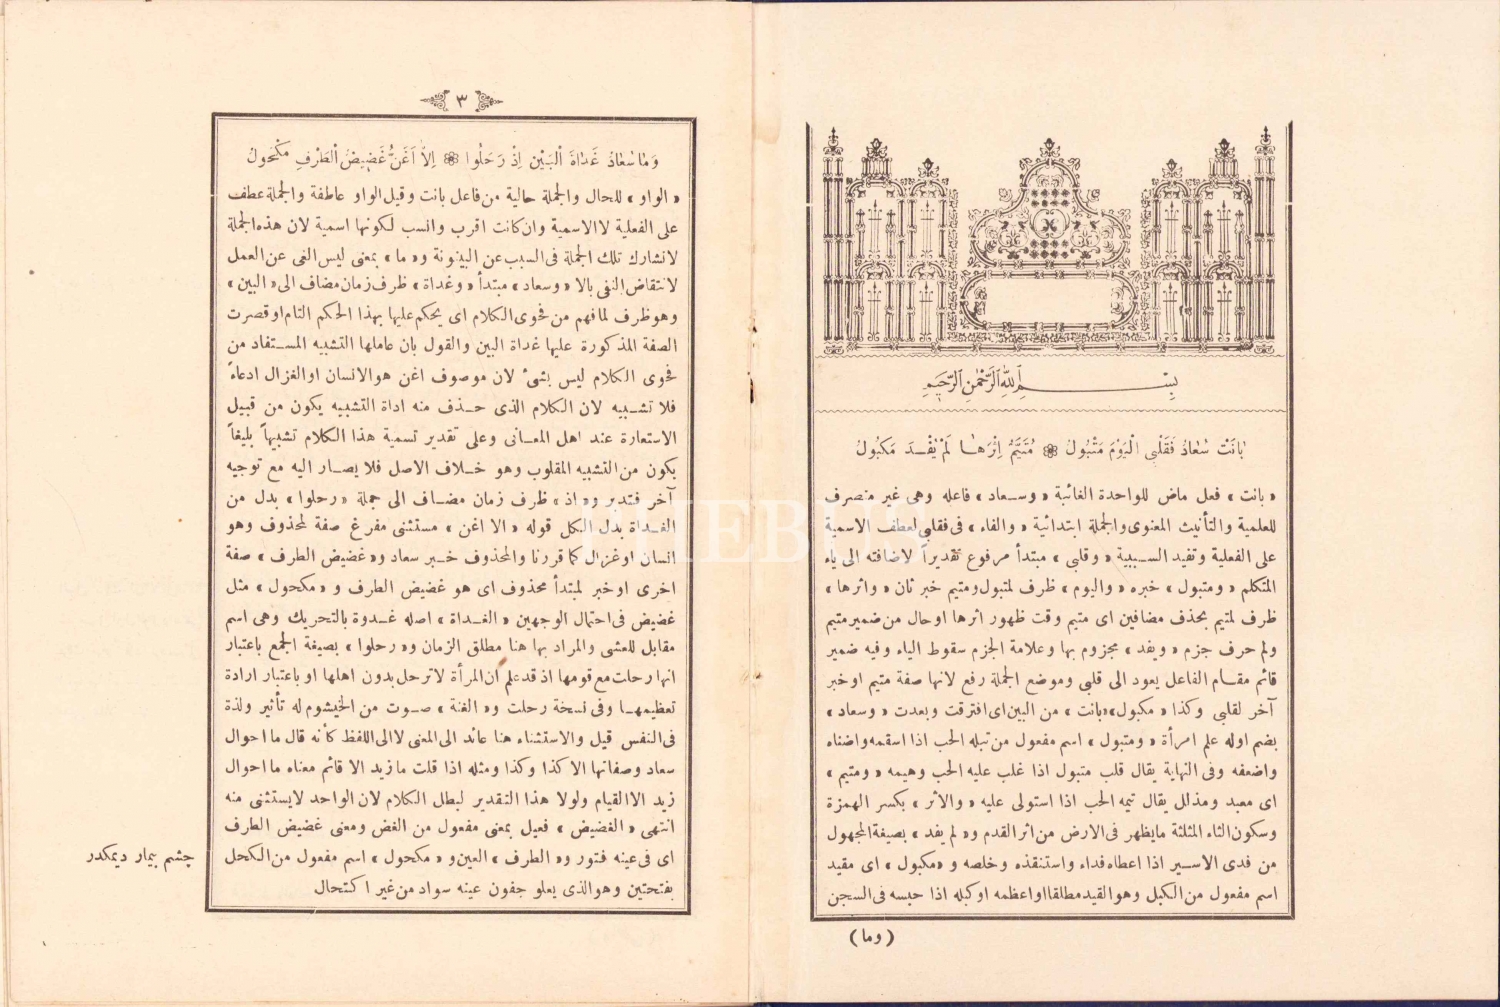 بِسْمِ اللّٰهِ الرَّحْمٰنِ الرَّحِيمِ
بَانَتْ سُعَادُ فَقَلْبِي الْيَوْمَ مَتْبُولُ ❁ مُتَيَّمٌ اِثْرَهَا لَمْ يُفْدَ مَكْبُولُ
« بانت » فعل ماض للواحدة الغائبة « وسعاد » فاعله وهى غير منصرف
للعلمية والتأنيث المعنوى والجملة ابتدائية « والفاء » فى فقلبى لعطف الاسمية
على الفعلية وتفيد السببية « وقلبى » مبتدأ مرفوع تقديراً لاضافته الى ياء
المتكلم « ومتبول » خبره « واليوم » ظرف لمتبول ومتيم خبر ثان « واثرها »
ظرف لمتيم بحذف مضافين اى متيم وقت ظهور اثرها او حال من ضمير متيم
ولم حرف جزم « ويفد » مجزوم بها وعلامة الجزم سقوط الياء وفيه ضمير
قائم مقام الفاعل يعود الى قلبى وموضع الجملة رفع لانها صفة متيم او خبر
آخر لقلبى وكذا « مكبول » « بانت » من البين اى افترقت وبعدت « وسعاد »
بضم اوله علم امرأة « ومتبول » اسم مفعول من تبله الحب اذا اسقمه واضناه
واضعفه وفى النهاية يقال قلب متبول اذا غلب عليه الحب وهيمه « ومتيم »
اى معبد ومذلل يقال تيمه الحب اذا استولى عليه « والاثر » بكسر الهمزة
وسكون الثاء المثلثة مايظهر فى الارض من اثر القدم و« لم يفد » بصيغة المجهول
من فدى الاسير اذا اعطاه فداء واستنقذه وخلصه و « مكبول » اى مقيد
اسم مفعول من الكبل وهو القيد مطلقا او اعظمه او كبله اذا حبسه فى السجن
( وما )
٣
وَمَا سُعَادُ غَدَاةَ الْبَيْنِ اِذْ رَحَلُوا ❁ اِلاَّ اَغَنُّ غَضِيضُ الطَّرْفِ مَكْحُولُ
« الواو » للحال والجملة حالية من فاعل بانت وقيل الواو عاطفة والجملة عطف
على الفعلية لا الاسمية وان كانت اقرب وانسب لكونها اسمية لان هذه الجملة
لاتشارك تلك الجملة فى السبب عن البينونة و« ما » بمعنى ليس الغى عن العمل
لانتقاض النفى بالا « وسعاد » مبتدأ « وغداة » ظرف زمان مضاف الى « البين »
وهو ظرف لما فهم من فحوى الكلام اى يحكم عليها بهذا الحكم التام او قصرت
الصفة المذكورة عليها غداة البين والقول بان عاملها التشبيه المستفاد من
فحوى الكلام ليس بشئ لان موصوف اغن هو الانسان او الغزال ادعاءً
فلا تشبيه لان الكلام الذى حذف منه اداة التشبيه يكون من قبيل
الاستعارة عند اهل المعانى وعلى تقدير تسمية هذا الكلام تشبيهاً بليغاً
يكون من التشبيه المقلوب وهو خلاف الاصل فلا يصار اليه مع توجيه
آخر فتدبر و« اذ » ظرف زمان مضاف الى جملة « رحلوا » بدل من
الغداة بدل الكل قوله « الا اغن » مستثنى مفرغ صفة لمحذوف وهو
انسان او غزال كما قررنا والمحذوف خبر سعاد و« غضيض الطرف » صفة
اخرى او خبر لمبتدأ محذوف اى هو غضيض الطرف و « مكحول » مثل
غضيض فى احتمال الوجهين « الغداة » اصله غدوة بالتحريك وهى اسم
مقابل للعشى والمراد بها هنا مطلق الزمان و« رحلوا » بصيغة الجمع باعتبار
انها رحلت مع قومها اذ قد علم ان المرأة لاترحل بدون اهلها او باعتبار ارادة
تعظيمها وفى نسخة رحلت و« الغنة » صوت من الخيشوم له تأثير ولذة
فى النفس قيل والاستثناء هنا عائد الى المعنى لا الى اللفظ كأنه قال ما احوال
سعاد وصفاتها الا كذا وكذا ومثله اذا قلت مازيد الا قائم معناه ما احوال
زيد الا القيام ولولا هذا التقدير لبطل الكلام لان الواحد لايستثنى منه
انتهى « الغضيض » فعيل بمعنى مفعول من الغض ومعنى غضيض الطرف
اى فى عينه فتور و« الطرف » العين و« مكحول » اسم مفعول من الكحل
بفتحتين وهو الذى يعلو جفون عينه سواد من غير اكتحال
چشم بيمار ديمكدر
PHEBUS